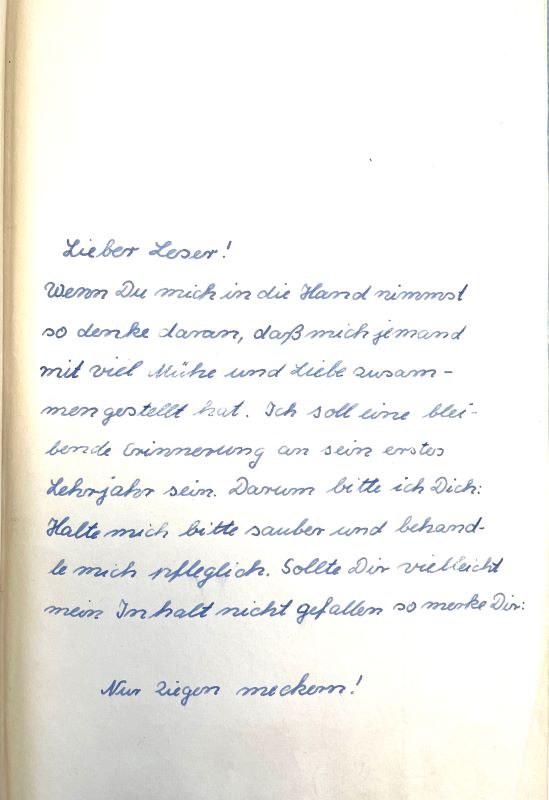 Lieber Leser!
Wenn Du mich in die Hand nimmst
so denke daran, daß mich jemand
mit viel Mühe und Liebe zusam-
mengestellt hat. Ich soll eine blei-
bende Erinnerung an sein erstes
Lehrjahr sein. Darum bitte ich Dich:
Halte mich bitte sauber und behand-
le mich pfleglich. Sollte Dir vielleicht
mein Inhalt nicht gefallen so merke Dir:
Nur Ziegen meckern!